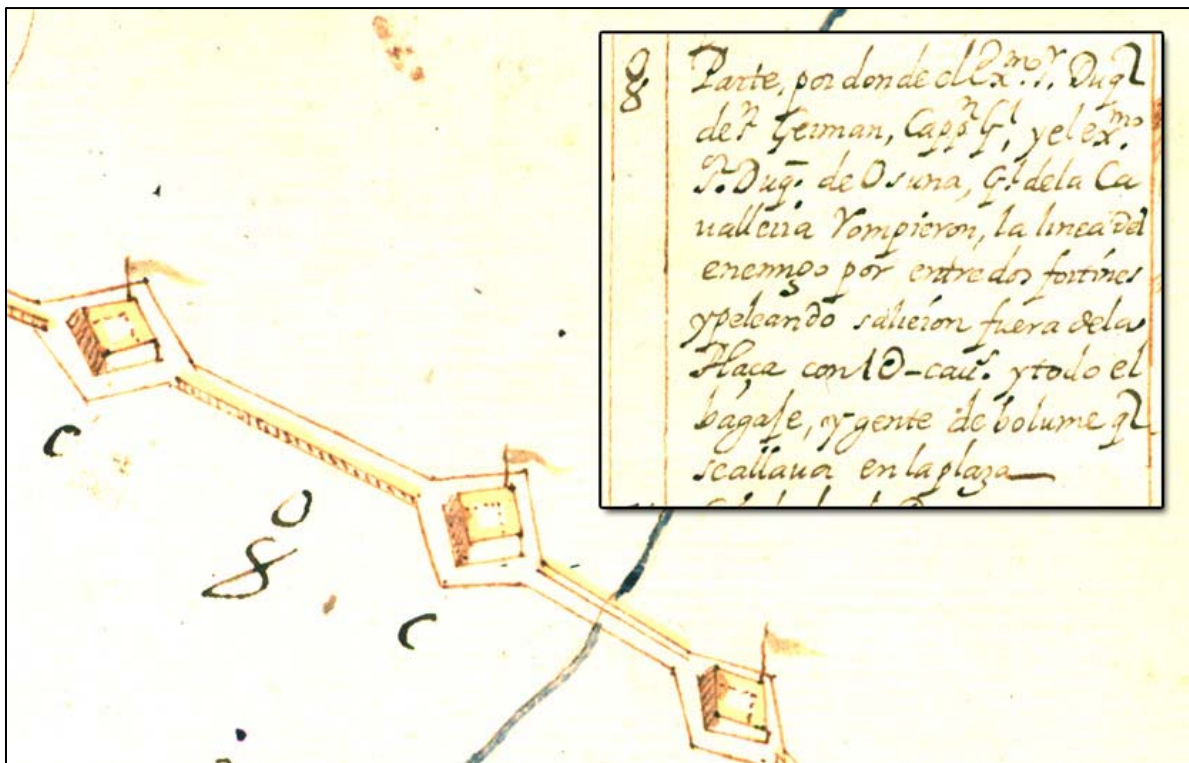 8 Parte, por donde el Ex.mo S.r Duq̃
de S.n German, Capp.n G.l, y el ex.mo
S.r Duq̃. de Osuna, G.l de la Ca
ualleria Rompieron, la linea del
enemigo por entre dos fortines
y peleando salieron fuera de la
Plaça con 1O-cau.s. y todo el
bagaje, y gente de bolume q̃
se allaua en la plaza
C
8
C